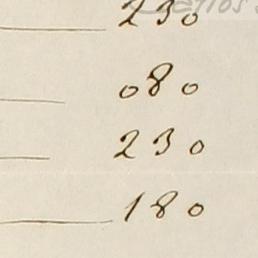 230
080
230
180